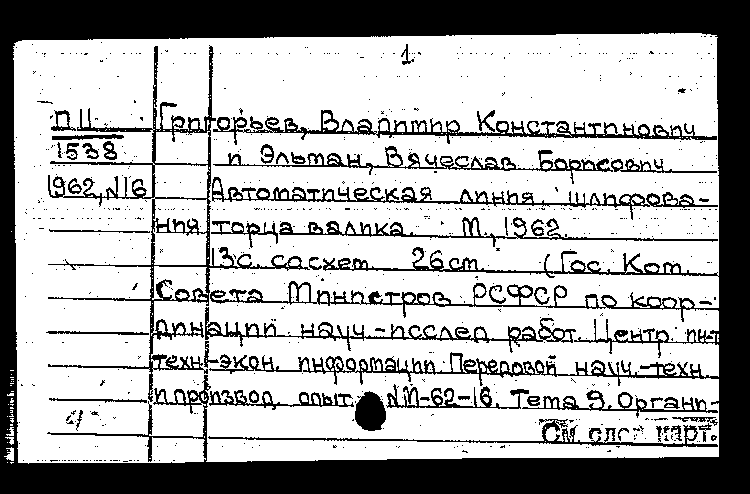 1
П II Григорьев, Владимир Константинович
1538 и Эльман, Вячеслав Борисович.
1962, N16 Автоматическая линия шлифова-
ния торца валика. М., 1962.
13с. со схем 26 см (Гос. Ком.
Совета Министров РСФСР по коор-
динации науч.-исслед. работ. Центр. ин-т
техн.-экон. информации. Передовой науч.-техн.
и производ. опыт. N М-62-16. Тема 9. Органи-
См. след. карт.